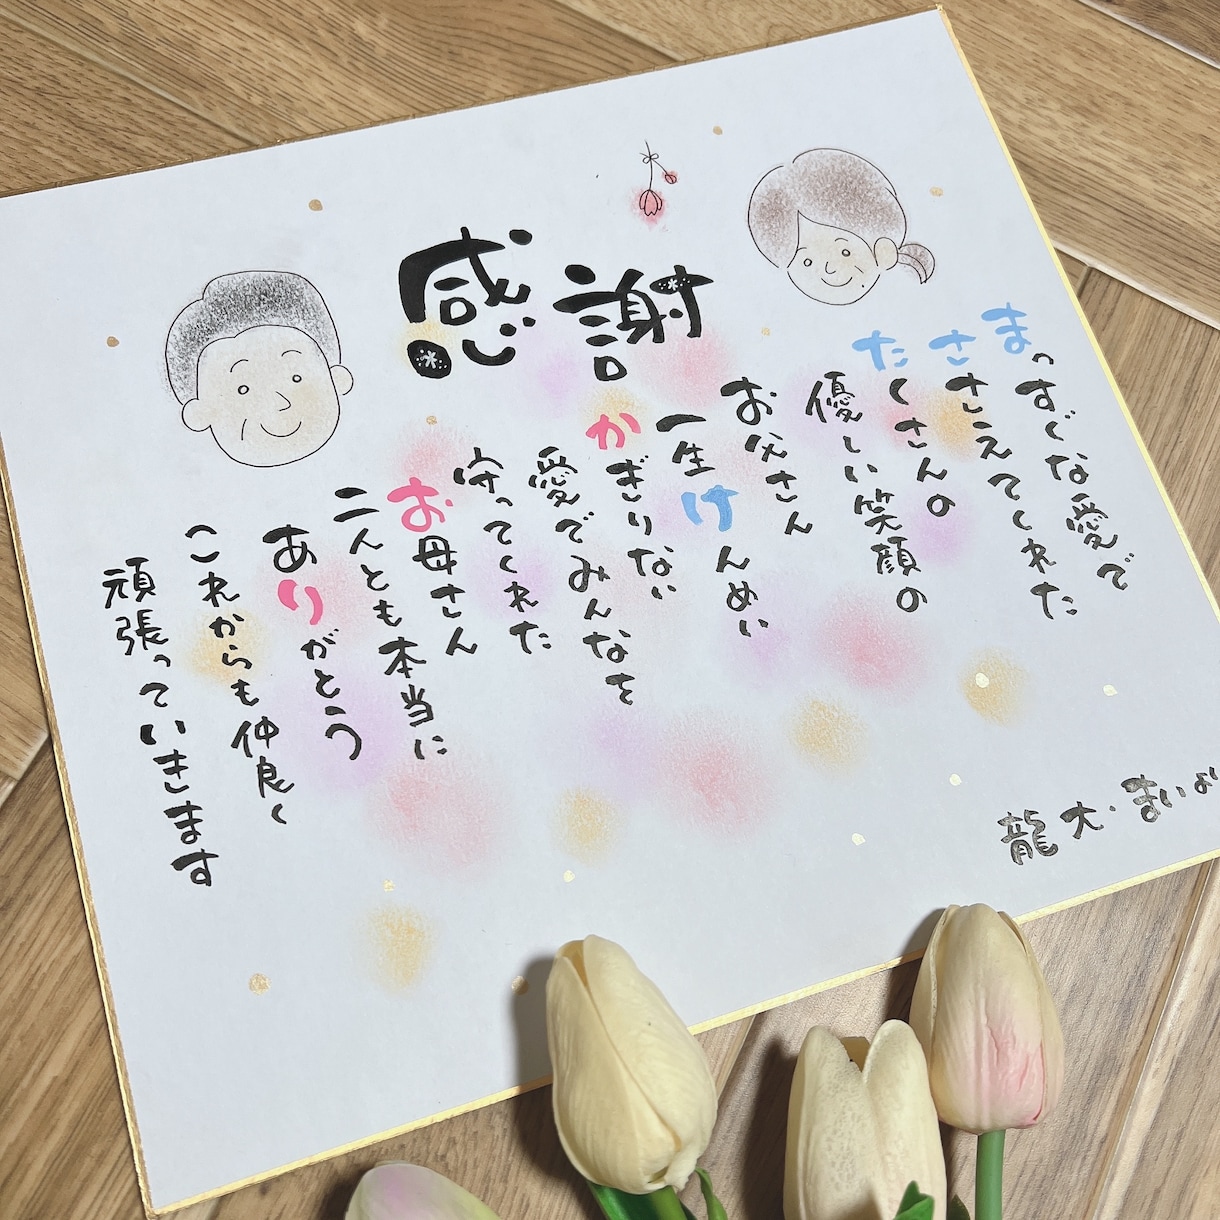 感謝
まっすぐな愛で
ささえてくれた
たくさんの
優しい笑顔の
お父さん
一生けんめい
かぎりない
愛でみんなを
守ってくれた
お母さん
二人とも本当に
ありがとう
これからも仲良く
頑張っていきます
龍大・まいより